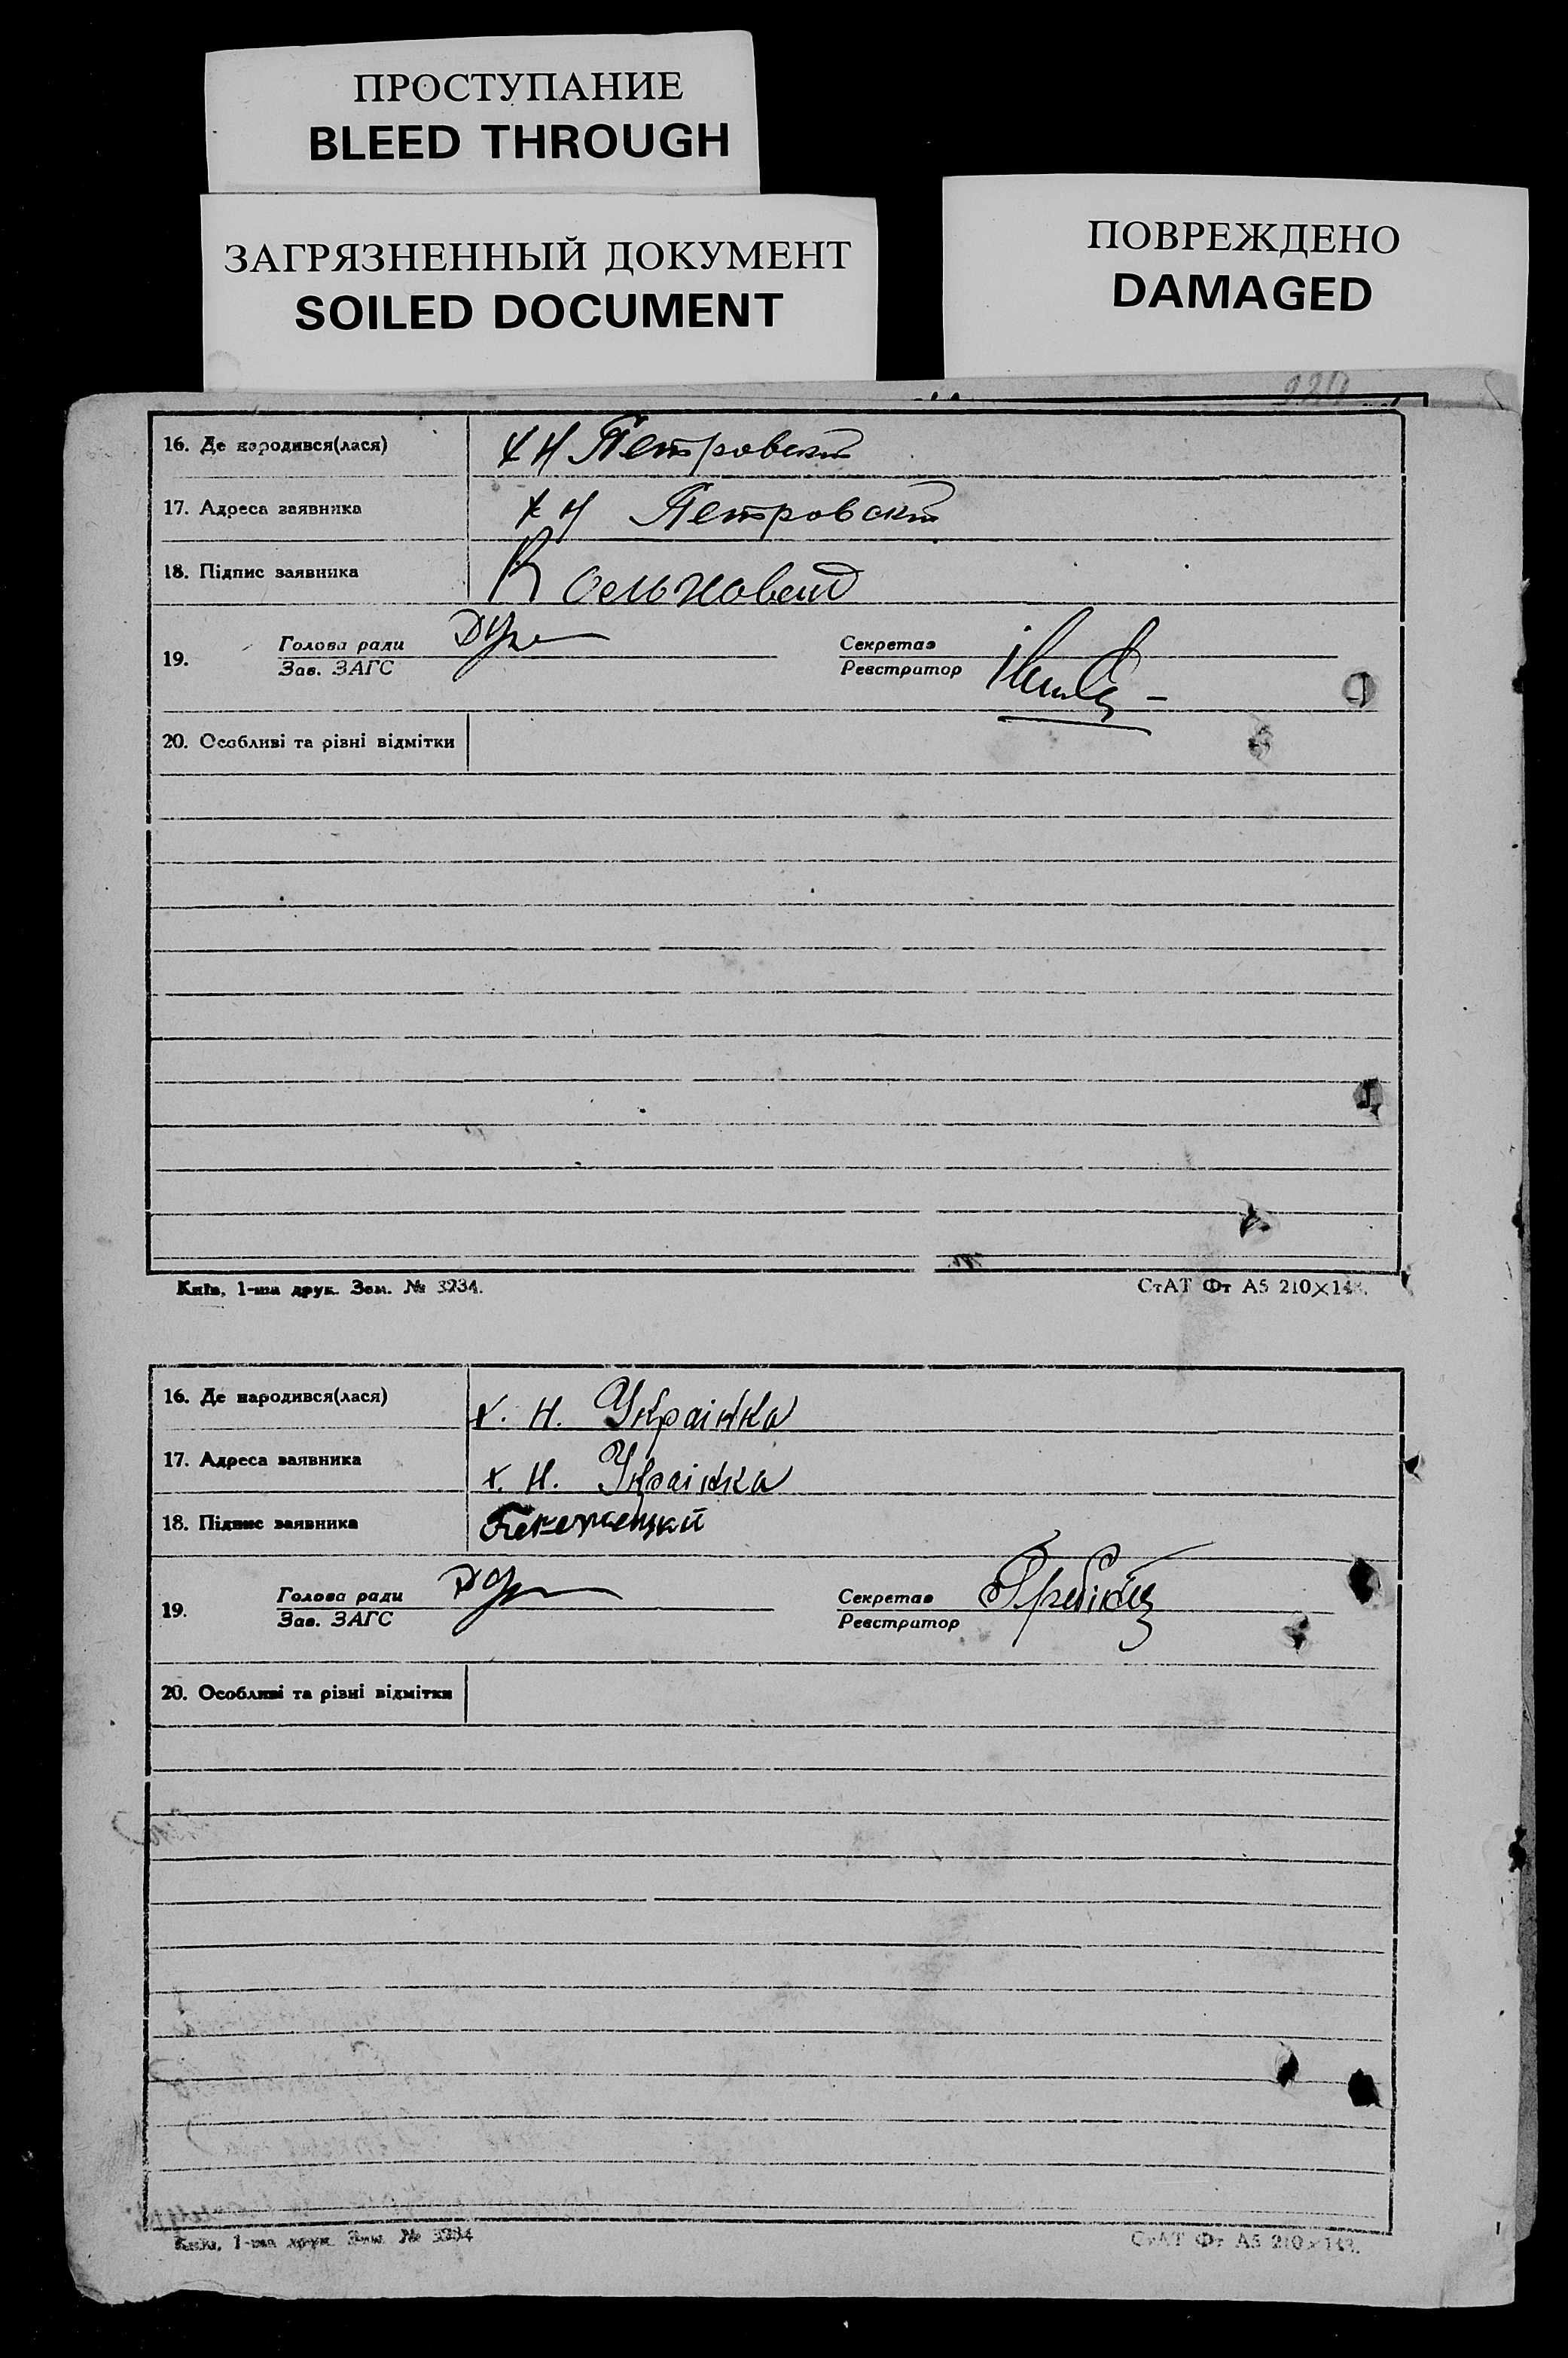 ПРОСТУПАНИЕ
BLEED THROUGH
ЗАГРЯЗНЕННЫЙ ДОКУМЕНТ
SOILED DOCUMENT
ПОВРЕЖДЕНО
DAMAGED
16. Де народився(лася) х Н Петровськ
17. Адреса заявника х Н Петровськ
18. Підпис заявника
19. Голова ради Секретар
Зав. ЗАГС Реєстратор
20. Особливі та різні відмітки
Київ, 1-ша друк. Зам. № 3234. СтАТ Фт А5 210×148.
16. Де народився(лася) х. Н. Українка
17. Адреса заявника х. Н. Українка
18. Підпис заявника
19. Голова ради Секретар
Зав. ЗАГС Реєстратор
20. Особливі та різні відмітки
Київ, 1-ша друк. Зам. № 3234 СтАТ Фт А5 210×148.